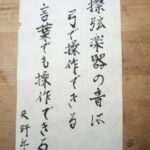 擦弦楽器の音は
弓で操作できる
言葉でも操作できる